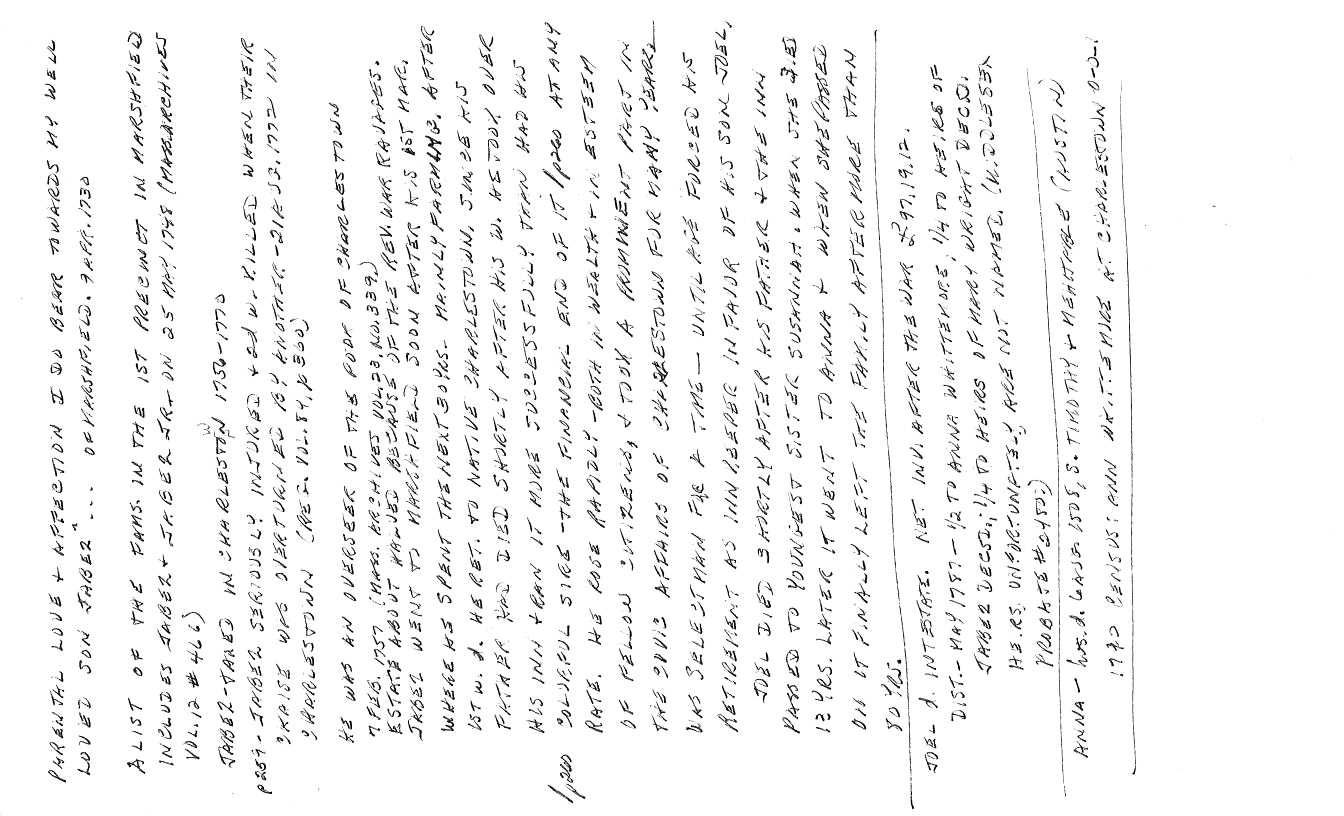 PARENTAL LOVE & AFFECTION I DO BEAR TOWARDS MY WELL
LOVED SON JABEZ"... OF MARSHFIELD. 9 APR. 1730
A LIST OF THE FAMS. IN THE 1ST PRECINCT IN MARSHFIELD
INCLUDES JABEZ & JABEZ JR - ON 25 MAY 1748 (MASS. ARCHIVES
VOL. 12 # 466)
JABEZ - TAXED IN CHARLESTOWN 1756-1770
p259 - JABEZ SERIOUSLY INJURED & 2d W. KILLED WHEN THEIR
CHAISE WAS OVERTURNED BY ANOTHER - 21 1772 IN
CHARLESTOWN (REG. VOL. 84, p 360)
HE WAS AN OVERSEER OF THE POOR OF CHARLESTOWN
7 FEB. 1757 (MASS. ARCHIVES VOL. 23, NO. 339)
ESTATE ABOUT BECAUSE OF THE REV. WAR RAVAGES.
JABEZ WENT TO MARSHFIELD SOON AFTER HIS 1ST MAR.
WHERE HE SPENT THE NEXT 30 YRS - MAINLY FARMING. AFTER
1ST W. d. HE RET. TO NATIVE CHARLESTOWN, SINCE HIS
FATHER HAD DIED SHORTLY AFTER HIS W. HE TOOK OVER
HIS INN & RAN IT MORE SUCCESSFULLY THAN HAD HIS
COLORFUL SIRE - THE FINANCIAL END OF IT /p260 AT ANY
/p260 RATE. HE ROSE RAPIDLY - BOTH IN WEALTH & IN ESTEEM
OF FELLOW CITIZENS, & TOOK A PROMINENT PART IN
THE CIVIC AFFAIRS OF CHARLESTOWN FOR MANY YEARS,
WAS SELECTMAN FOR A TIME - UNTIL AGE FORCED HIS
RETIREMENT AS INNKEEPER IN FAVOR OF HIS SON JOEL,
JOEL DIED SHORTLY AFTER HIS FATHER & THE INN
PASSED TO YOUNGEST SISTER SUSANNAH. WHEN SHE d. ED
13 YRS. LATER IT WENT TO ANNA & WHEN SHE PASSED
ON IT FINALLY LEFT THE FAMILY AFTER MORE THAN
80 YRS.
JOEL d. INTESTATE. NET INV. AFTER THE WAR £97.19.12.
DIST. - MAY 1787 - 1/2 TO ANNA WHITTEMORE; 1/4 TO HEIRS OF
JABEZ DECSD.; 1/4 TO HEIRS OF MARY WRIGHT DECSD.
HEIRS, UNFORTUNATELY, ARE NOT NAMED. (MIDDLESEX
PROBATE # 2450.)
ANNA - hus. d. 1505, S. TIMOTHY & MEHITABLE (CUSTIN)
1790 CENSUS: ANN WHITTEMORE AT CHARLESTOWN 0-0-1